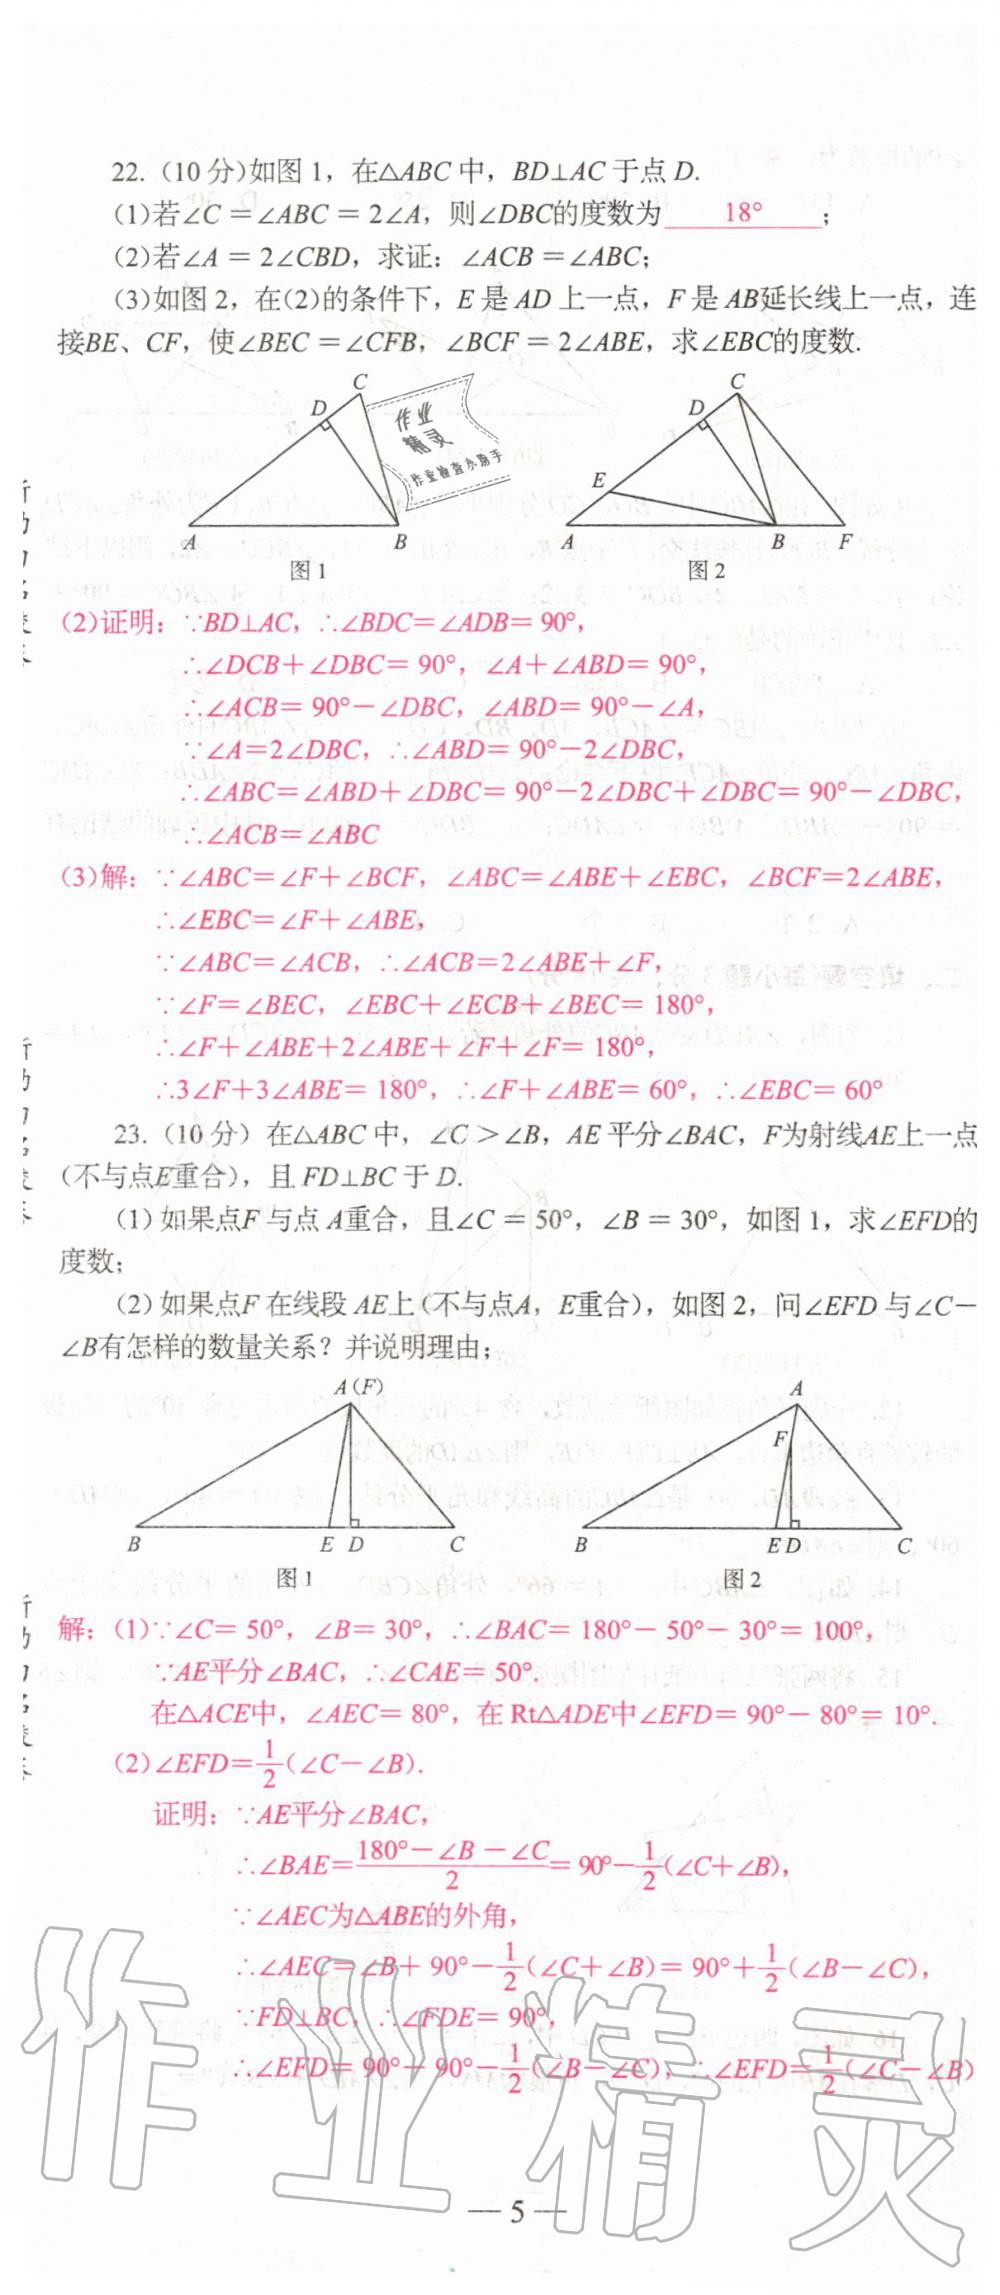 22. (10分)如图1，在△ABC中，BD⊥AC于点D.
(1)若∠C＝∠ABC＝2∠A，则∠DBC的度数为 18° ；
(2)若∠A＝2∠CBD，求证：∠ACB＝∠ABC；
(3)如图2，在(2)的条件下，E是AD上一点，F是AB延长线上一点，连
接BE、CF，使∠BEC＝∠CFB，∠BCF＝2∠ABE，求∠EBC的度数.
C
D
A
B
图1
作业
精灵
作业检查小助手
C
D
E
A
B
F
图2
(2)证明：∵BD⊥AC，∴∠BDC＝∠ADB＝90°，
∴∠DCB＋∠DBC＝90°，∠A＋∠ABD＝90°，
∴∠ACB＝90°－∠DBC，∠ABD＝90°－∠A，
∵∠A＝2∠DBC，∴∠ABD＝90°－2∠DBC，
∴∠ABC＝∠ABD＋∠DBC＝90°－2∠DBC＋∠DBC＝90°－∠DBC，
∴∠ACB＝∠ABC
(3)解：∵∠ABC＝∠F＋∠BCF，∠ABC＝∠ABE＋∠EBC，∠BCF＝2∠ABE，
∴∠EBC＝∠F＋∠ABE，
∵∠ABC＝∠ACB，∴∠ACB＝2∠ABE＋∠F，
∵∠F＝∠BEC，∠EBC＋∠ECB＋∠BEC＝180°，
∴∠F＋∠ABE＋2∠ABE＋∠F＋∠F＝180°，
∴3∠F＋3∠ABE＝180°，∴∠F＋∠ABE＝60°，∴∠EBC＝60°
23. (10分) 在△ABC中，∠C＞∠B，AE平分∠BAC，F为射线AE上一点
(不与点E重合)，且FD⊥BC于D.
(1) 如果点F与点A重合，且∠C＝50°，∠B＝30°，如图1，求∠EFD的
度数；
(2) 如果点F在线段AE上(不与点A，E重合)，如图2，问∠EFD与∠C－
∠B有怎样的数量关系？并说明理由；
A(F)
B
E D
C
图1
A
F
B
E D
C
图2
解：(1)∵∠C＝50°，∠B＝30°，∴∠BAC＝180°－50°－30°＝100°，
∵AE平分∠BAC，∴∠CAE＝50°.
在△ACE中，∠AEC＝80°，在Rt△ADE中∠EFD＝90°－80°＝10°.
(2)∠EFD＝1/2(∠C－∠B).
证明：∵AE平分∠BAC，
∴∠BAE＝(180°－∠B－∠C)/2＝90°－1/2(∠C＋∠B)，
∵∠AEC为△ABE的外角，
∴∠AEC＝∠B＋90°－1/2(∠C＋∠B)＝90°＋1/2(∠B－∠C)，
∵FD⊥BC，∴∠FDE＝90°，
∴∠EFD＝90°－90°－1/2(∠B－∠C)，∴∠EFD＝1/2(∠C－∠B)
作业精灵
— 5 —